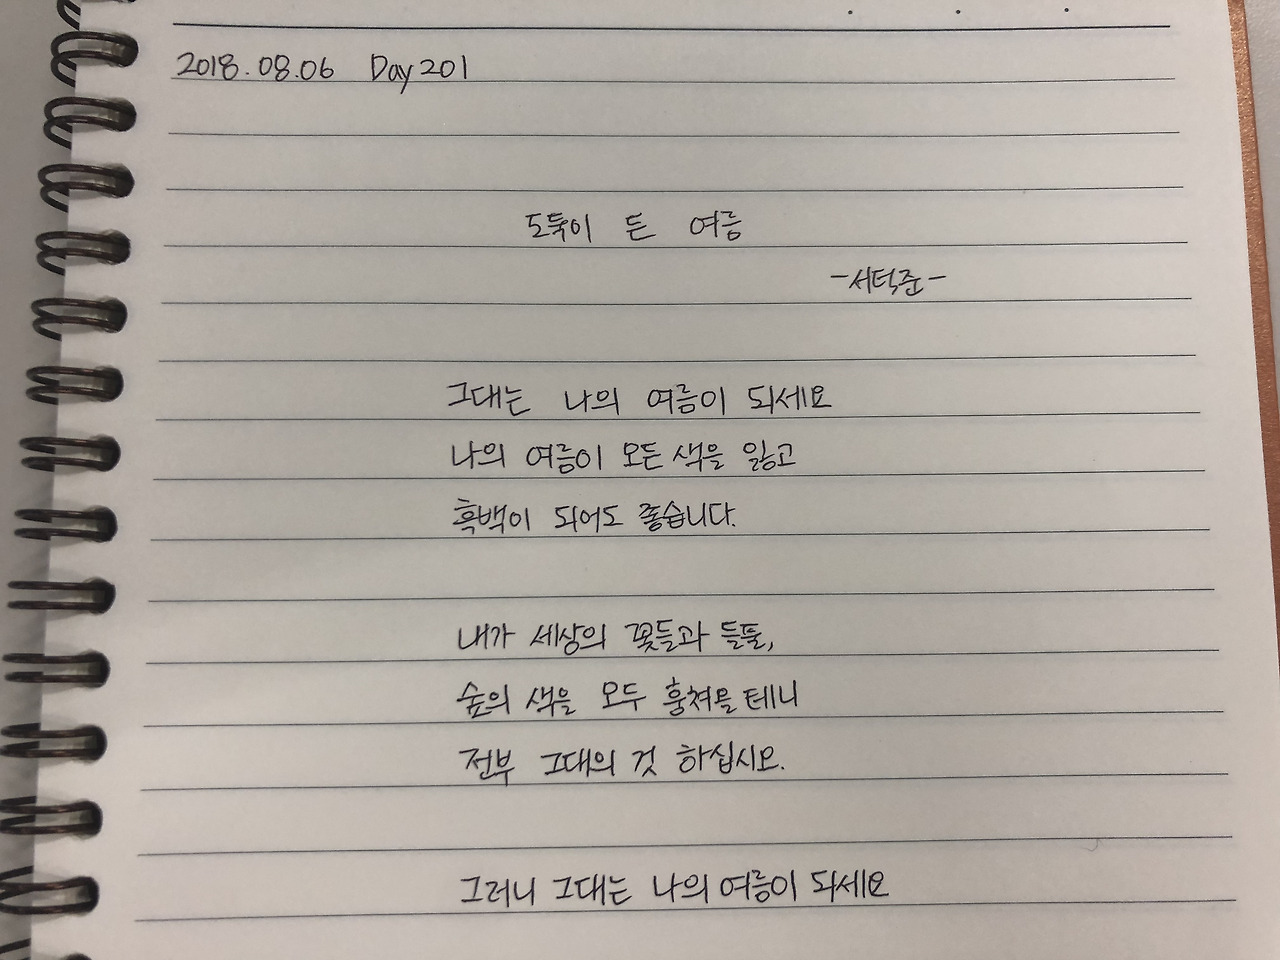 2018.08.06 Day 201
도둑이 든 여름
-서덕준-
그대는 나의 여름이 되세요
나의 여름이 모든 색을 잃고
흑백이 되어도 좋습니다.
내가 세상의 꽃들과 들풀,
숲의 색을 모두 훔쳐올 테니
전부 그대의 것 하십시오.
그러니 그대는 나의 여름이 되세요